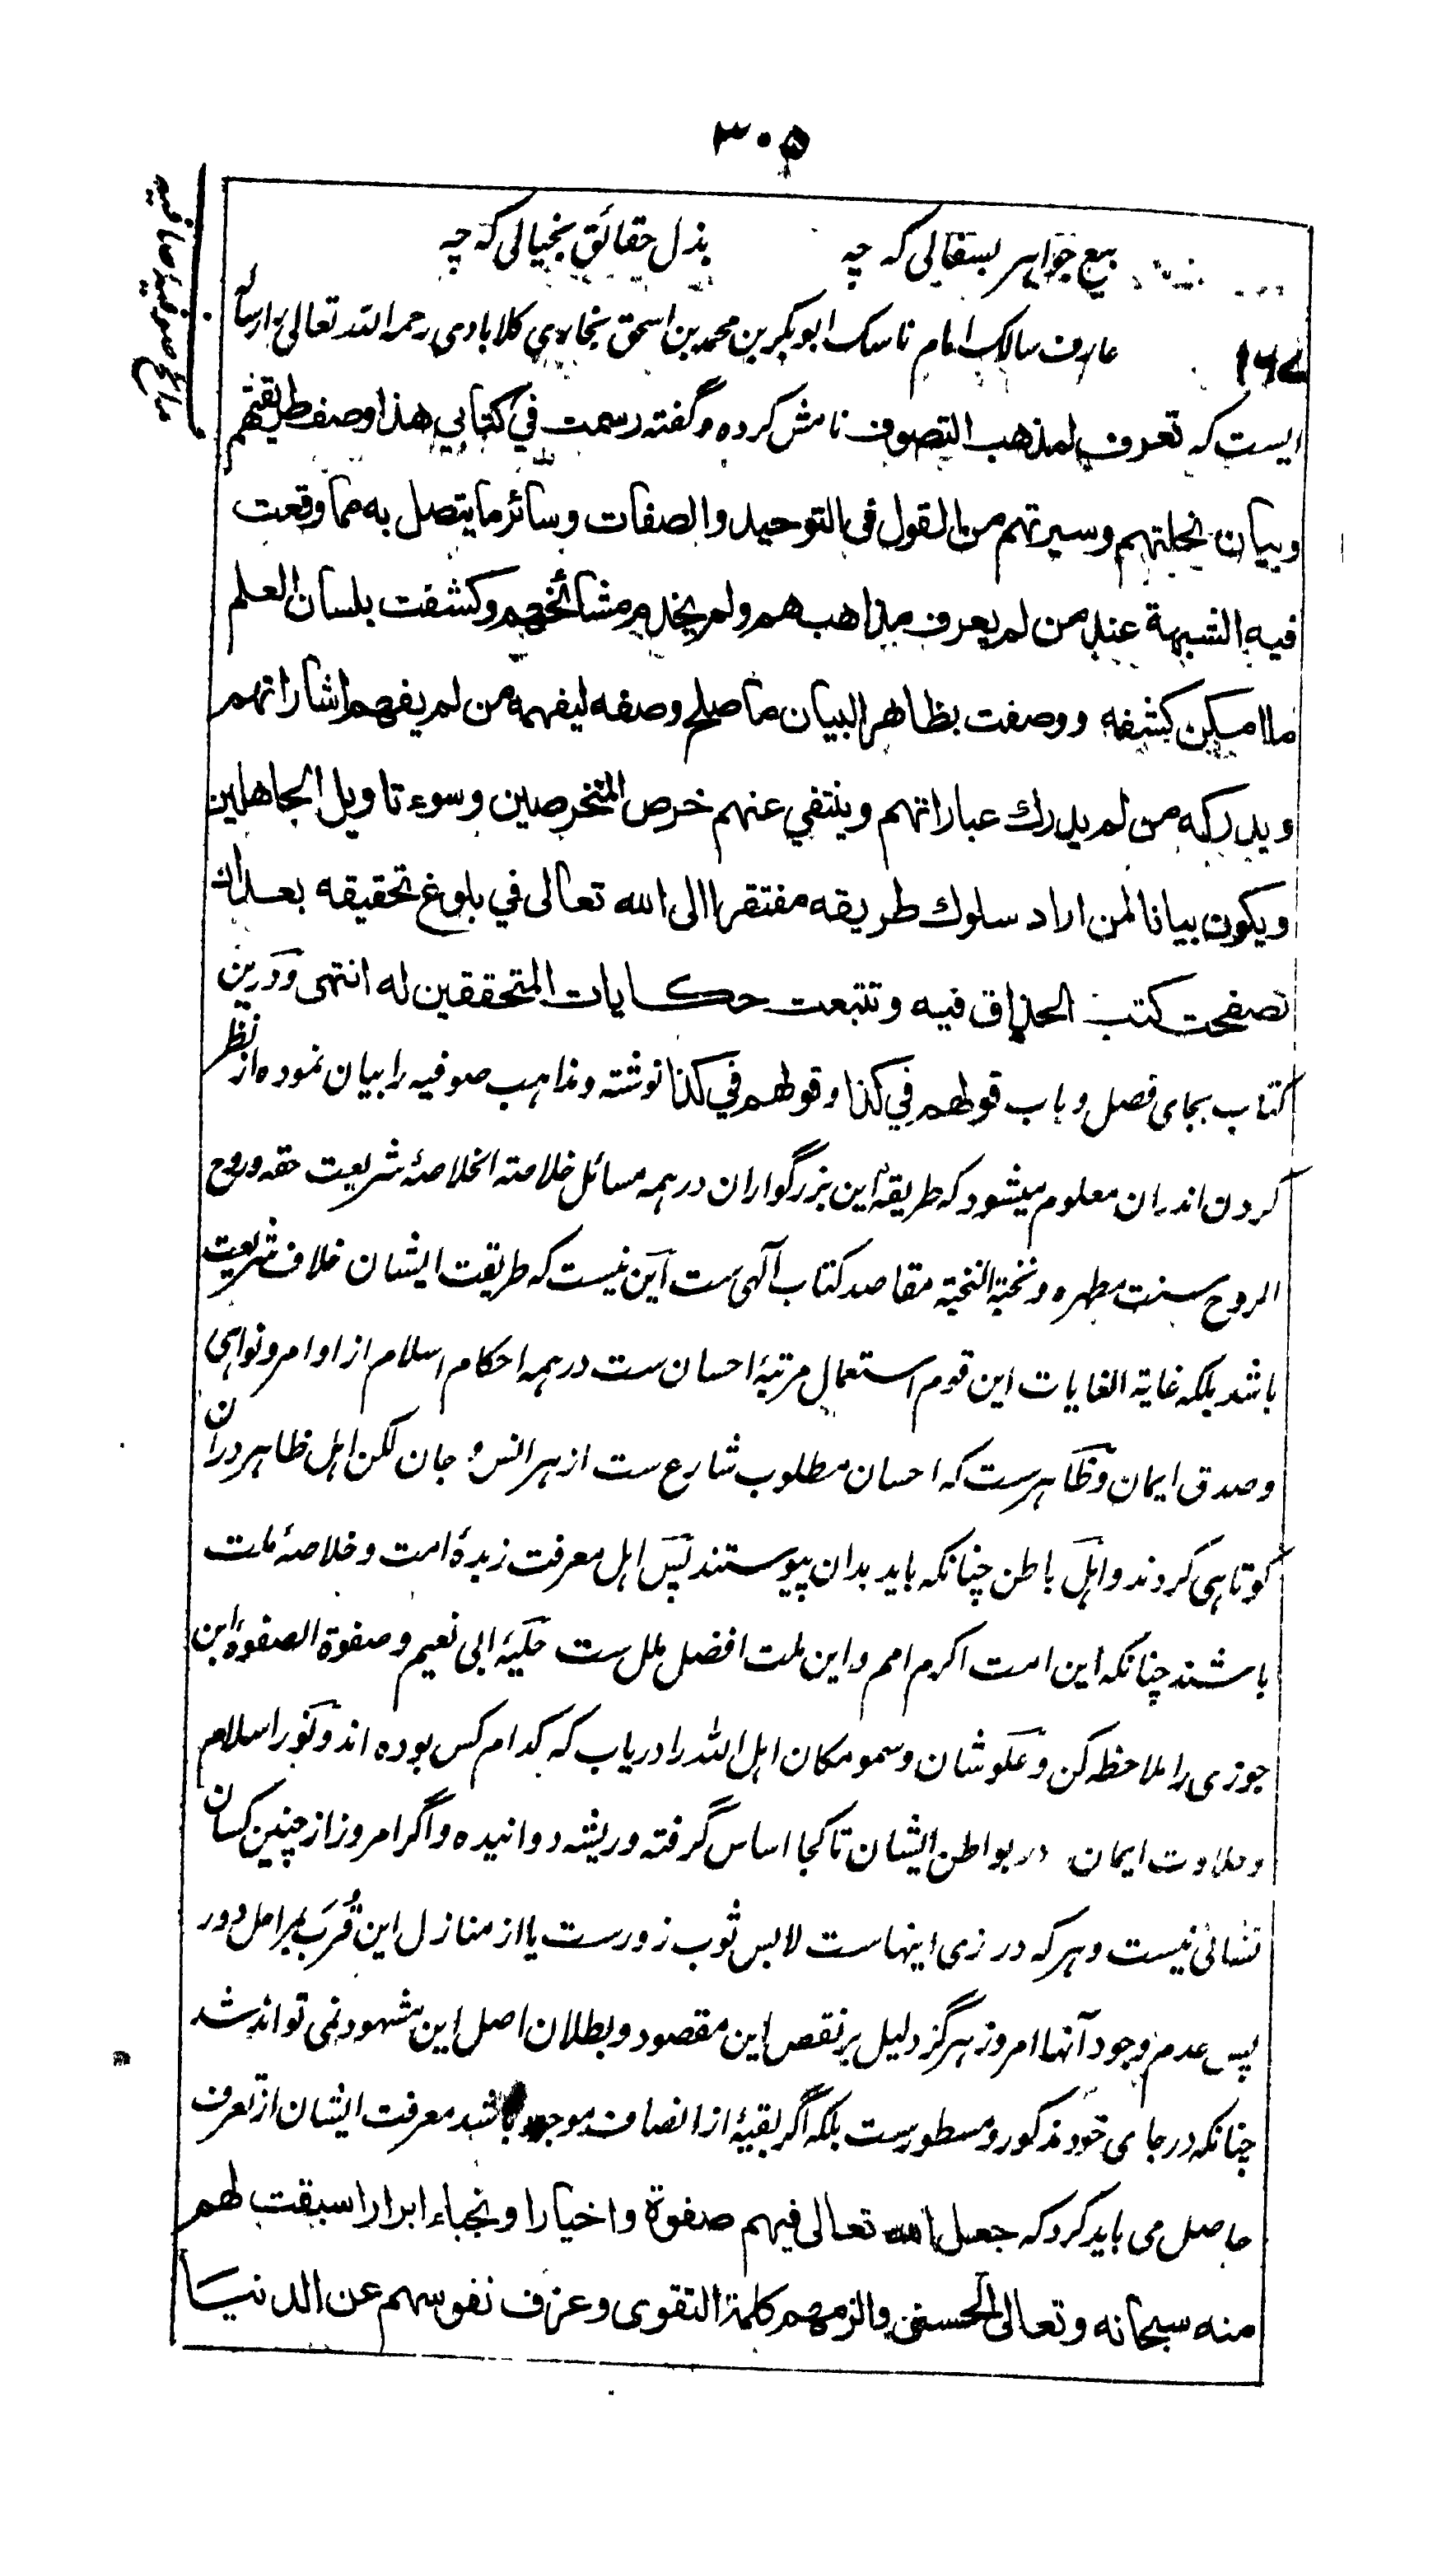 ۳۰۵
مدائح صوفیهٔ صافیه
بیع جواهر بسفالی که چه بذل حقائق بخیالی که چه
عارف سالک امام ناسک ابوبکر بن محمد بن اسحق بخاری کلابادی رحمه الله تعالی را رساله
ایست که تعرف لمذهب التصوف نامش کرده و گفته رسمت في کتابي هذا وصف طریقتهم
وبیان نحلتهم وسیرتهم من القول فی التوحید والصفات وسائر ما یتصل به مما وقعت
فیه الشبهة عند من لم یعرف مذاهبهم ولم یخدم مشائخهم وکشفت بلسان العلم
ما امکن کشفه ووصفت بظاهر البیان ما صلح وصفه لیفهمه من لم یفهم اشاراتهم
ویدرکه من لم یدرك عباراتهم وینتفي عنهم خرص المتخرصین وسوء تاویل الجاهلین
ویکون بیانا لمن اراد سلوك طریقه مفتقرا الی الله تعالی في بلوغ تحقیقه بعد ان
تصفحت کتب الحذاق فیه وتتبعت حکایات المتحققین له انتهی و درین
کتاب بجای فصل و باب قولهم في کذا وقولهم في کذا نوشته و مذاهب صوفیه را بیان نموده از نظر
کردن اندران معلوم میشود که طریقهٔ این بزرگواران در همه مسائل خلاصة الخلاصهٔ شریعت حقه و روح
الروح سنت مطهره و نخبة النخبهٔ مقاصد کتاب الهی ست این نیست که طریقت ایشان خلاف شریعت
باشد بلکه غایة الغایات این قوم استعمال مرتبهٔ احسان ست در همه احکام اسلام از اوامر و نواهی
و صدق ایمان و ظاهرست که احسان مطلوب شارع ست از هر انس و جان لکن اهل ظاهر دران
کوتاهی کردند و اهل باطن چنانکه باید بدان پیوستند پس اهل معرفت زبدهٔ امت و خلاصهٔ ملت
باشند چنانکه این امت اکرم امم و این ملت افضل ملل ست حلیهٔ ابی نعیم و صفوة الصفوهٔ ابن
جوزی را ملاحظه کن و علو شان و سمو مکان اهل الله را دریاب که کدام کس بوده اند و نور اسلام
و حلاوت ایمان در بواطن ایشان تا کجا اساس گرفته و ریشه دوانیده و اگر امروز از چنین کسان
نشانی نیست و هر که در زی اینهاست لابس ثوب زورست یا از منازل این قُرب بمراحل دور
پس عدم وجود آنها امروز هرگز دلیل بر نقص این مقصود و بطلان اصل این مشهود نمی تواند شد
چنانکه در جای خود مذکور و مسطورست بلکه اگر بقیهٔ از انصاف موجود باشد معرفت ایشان از تعرف
حاصل می باید کرد که جعل الله تعالی فیهم صفوة واخیارا ونجباء ابرارا سبقت لهم
منه سبحانه وتعالی الحسنی والزمهم کلمة التقوی وعزف نفوسهم عن الدنیا